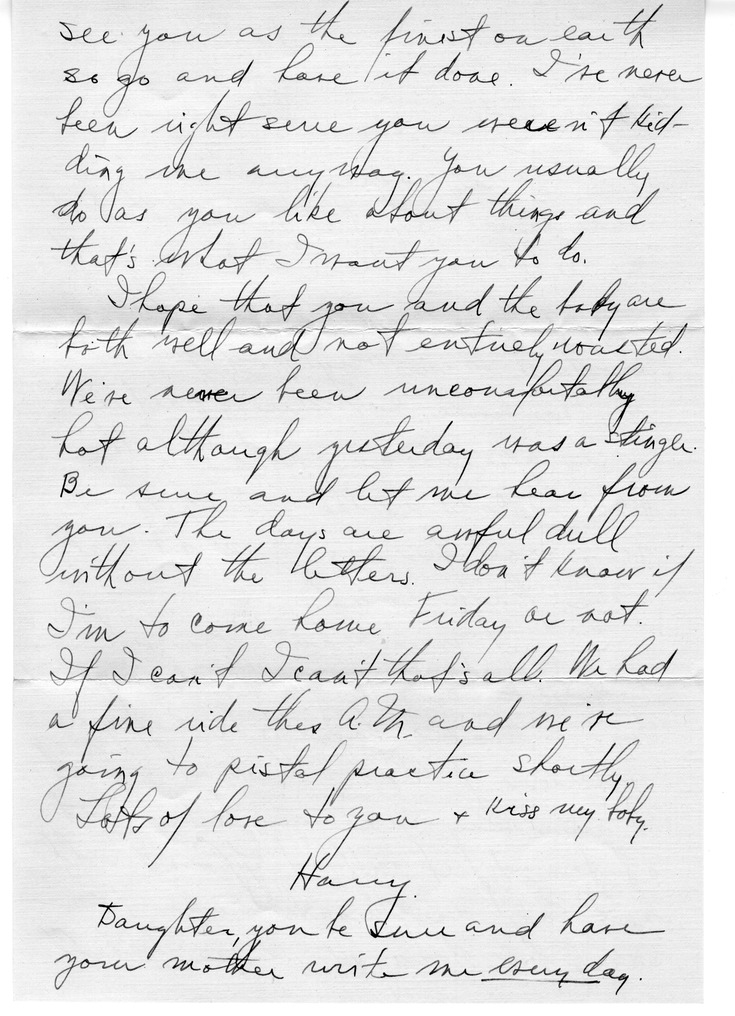 see you as the finest on earth
so go and have it done. I've never
been right sure you weren't kid-
ding me anyway. You usually
do as you like about things and
that's what I want you to do.
I hope that you and the baby are
both well and not entirely roasted.
We've never been uncomfortably
hot although yesterday was a stinger.
Be sure and let me hear from
you. The days are awful dull
without the letters. I don't know if
I'm to come home Friday or not.
If I can't I can't that's all. We had
a fine ride this A.M. and we're
going to pistol practice shortly.
Lots of love to you + kiss my baby.
Harry.
Daughter, you be sure and have
your mother write me every day.